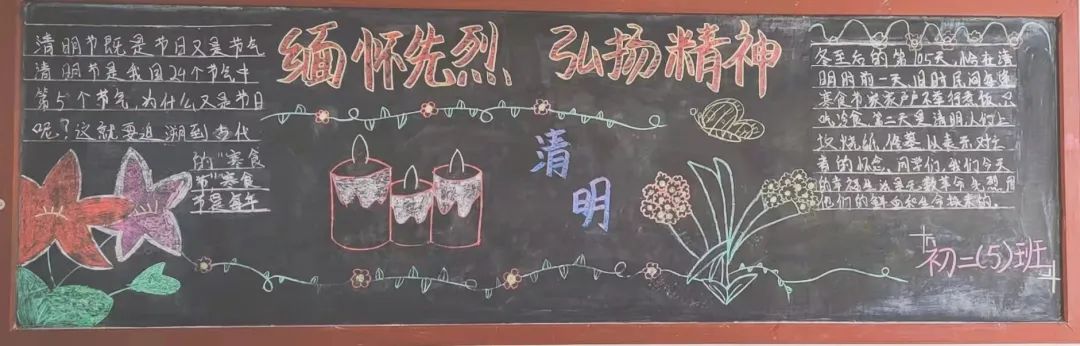 缅怀先烈 弘扬精神
清明节既是节日又是节气
清明节是我国24个节气中
第5个节气,为什么又是节日
呢?这就要追溯到古代
的"寒食
节"寒食
节是每年
清
明
冬至后的第105天,恰在清
明时前一天,旧时民间每逢
寒食节家家户户不举行煮饭,只
吃冷食,第二天是清明,人们上
坟烧纸、修墓,以表示对亡
者的怀念。同学们,我们今天
的幸福生活是无数革命先烈用
他们的鲜血和生命换来的。
初二(5)班